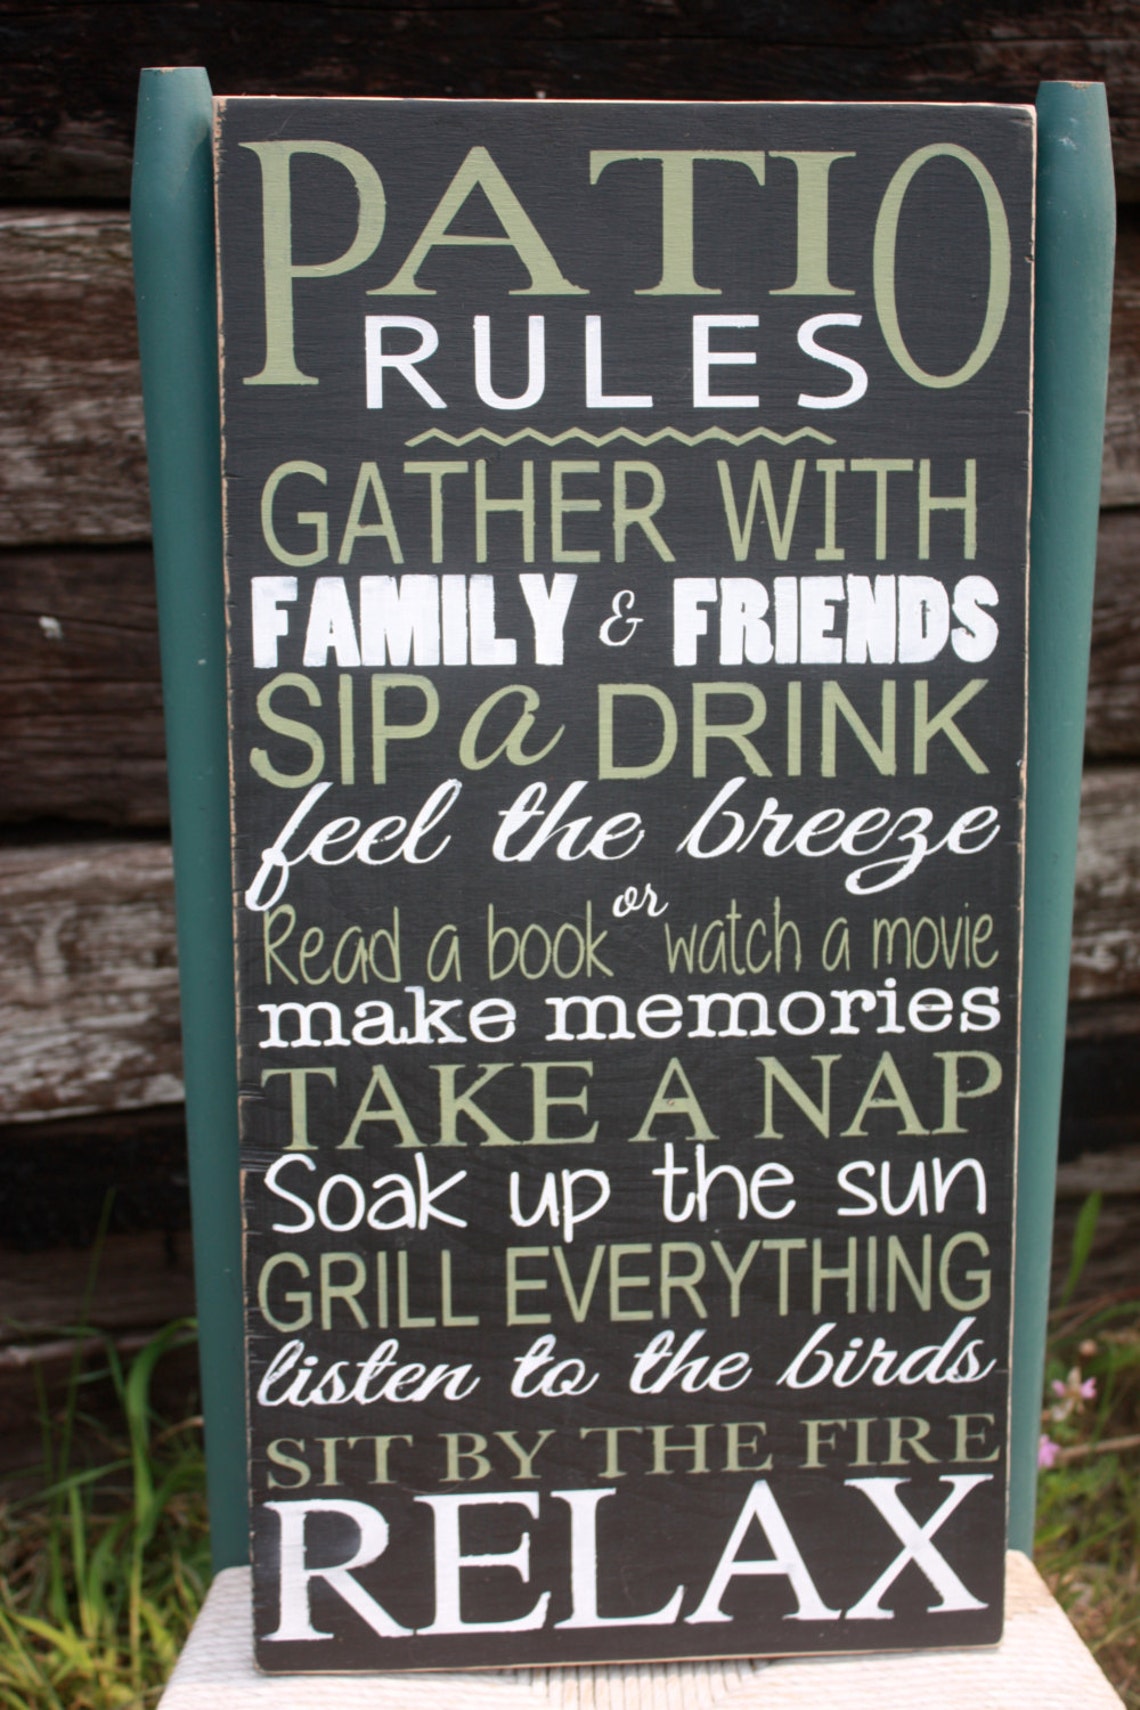 PATIO
RULES
GATHER WITH
FAMILY & FRIENDS
SIP a DRINK
feel the breeze
Read a book or watch a movie
make memories
TAKE A NAP
Soak up the sun
GRILL EVERYTHING
listen to the birds
SIT BY THE FIRE
RELAX